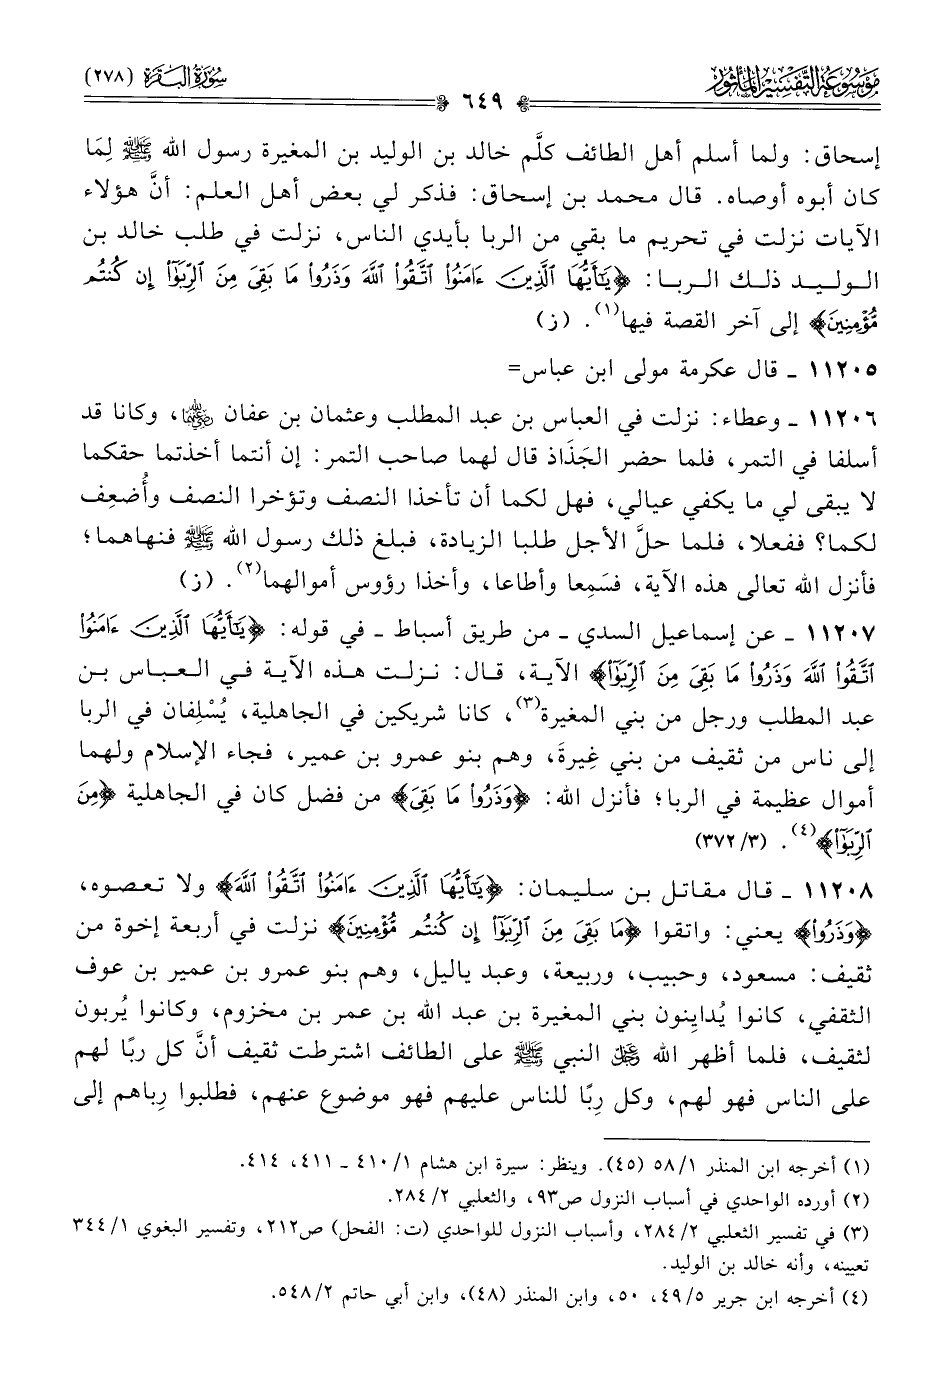 مَوْسُوعَة التَّفْسِير المَأْثُور
سُورَةُ البَقَرَة (٢٧٨)
٦٤٩
إسحاق: ولما أسلم أهل الطائف كلَّم خالد بن الوليد بن المغيرة رسول الله ﷺ لِمَا
كان أبوه أوصاه. قال محمد بن إسحاق: فذكر لي بعض أهل العلم: أنَّ هؤلاء
الآيات نزلت في تحريم ما بقي من الربا بأيدي الناس، نزلت في طلب خالد بن
الوليد ذلك الربا: ﴿يَٰٓأَيُّهَا ٱلَّذِينَ ءَامَنُوا۟ ٱتَّقُوا۟ ٱللَّهَ وَذَرُوا۟ مَا بَقِىَ مِنَ ٱلرِّبَوٰٓا۟ إِن كُنتُم
مُّؤْمِنِينَ﴾ إلى آخر القصة فيها(١). (ز)
١١٢٠٥ ـ قال عكرمة مولى ابن عباس=
١١٢٠٦ ـ وعطاء: نزلت في العباس بن عبد المطلب وعثمان بن عفان رضي الله عنهما، وكانا قد
أسلفا في التمر، فلما حضر الجَذَاذ قال لهما صاحب التمر: إن أنتما أخذتما حقكما
لا يبقى لي ما يكفي عيالي، فهل لكما أن تأخذا النصف وتؤخرا النصف وأُضعِف
لكما؟ ففعلا، فلما حلَّ الأجل طلبا الزيادة، فبلغ ذلك رسول الله ﷺ فنهاهما؛
فأنزل الله تعالى هذه الآية، فسَمِعا وأطاعا، وأخذا رؤوس أموالهما(٢). (ز)
١١٢٠٧ ـ عن إسماعيل السدي ـ من طريق أسباط ـ في قوله: ﴿يَٰٓأَيُّهَا ٱلَّذِينَ ءَامَنُوا۟
ٱتَّقُوا۟ ٱللَّهَ وَذَرُوا۟ مَا بَقِىَ مِنَ ٱلرِّبَوٰٓا۟﴾ الآية، قال: نزلت هذه الآية في العباس بن
عبد المطلب ورجل من بني المغيرة(٣)، كانا شريكين في الجاهلية، يُسْلِفان في الربا
إلى ناس من ثقيف من بني غِيرةَ، وهم بنو عمرو بن عمير، فجاء الإسلام ولهما
أموال عظيمة في الربا؛ فأنزل الله: ﴿وَذَرُوا۟ مَا بَقِىَ﴾ من فضل كان في الجاهلية ﴿مِنَ
ٱلرِّبَوٰٓا۟﴾(٤). (٣/ ٣٧٢)
١١٢٠٨ ـ قال مقاتل بن سليمان: ﴿يَٰٓأَيُّهَا ٱلَّذِينَ ءَامَنُوا۟ ٱتَّقُوا۟ ٱللَّهَ﴾ ولا تعصوه،
﴿وَذَرُوا۟﴾ يعني: واتقوا ﴿مَا بَقِىَ مِنَ ٱلرِّبَوٰٓا۟ إِن كُنتُم مُّؤْمِنِينَ﴾ نزلت في أربعة إخوة من
ثقيف: مسعود، وحبيب، وربيعة، وعبد ياليل، وهم بنو عمرو بن عمير بن عوف
الثقفي، كانوا يُداينون بني المغيرة بن عبد الله بن عمر بن مخزوم، وكانوا يُربون
لثقيف، فلما أظهر الله عز وجل النبي ﷺ على الطائف اشترطت ثقيف أنَّ كل ربًا لهم
على الناس فهو لهم، وكل رِبًا للناس عليهم فهو موضوع عنهم، فطلبوا رِباهم إلى
(١) أخرجه ابن المنذر ١/ ٥٨ (٤٥). وينظر: سيرة ابن هشام ١/ ٤١٠ ـ ٤١١، ٤١٤.
(٢) أورده الواحدي في أسباب النزول ص٩٣، والثعلبي ٢/ ٢٨٤.
(٣) في تفسير الثعلبي ٢/ ٢٨٤، وأسباب النزول للواحدي (ت: الفحل) ص٢١٢، وتفسير البغوي ١/ ٣٤٤
تعيينه، وأنه خالد بن الوليد.
(٤) أخرجه ابن جرير ٥/ ٤٩، ٥٠، وابن المنذر (٤٨)، وابن أبي حاتم ٢/ ٥٤٨.